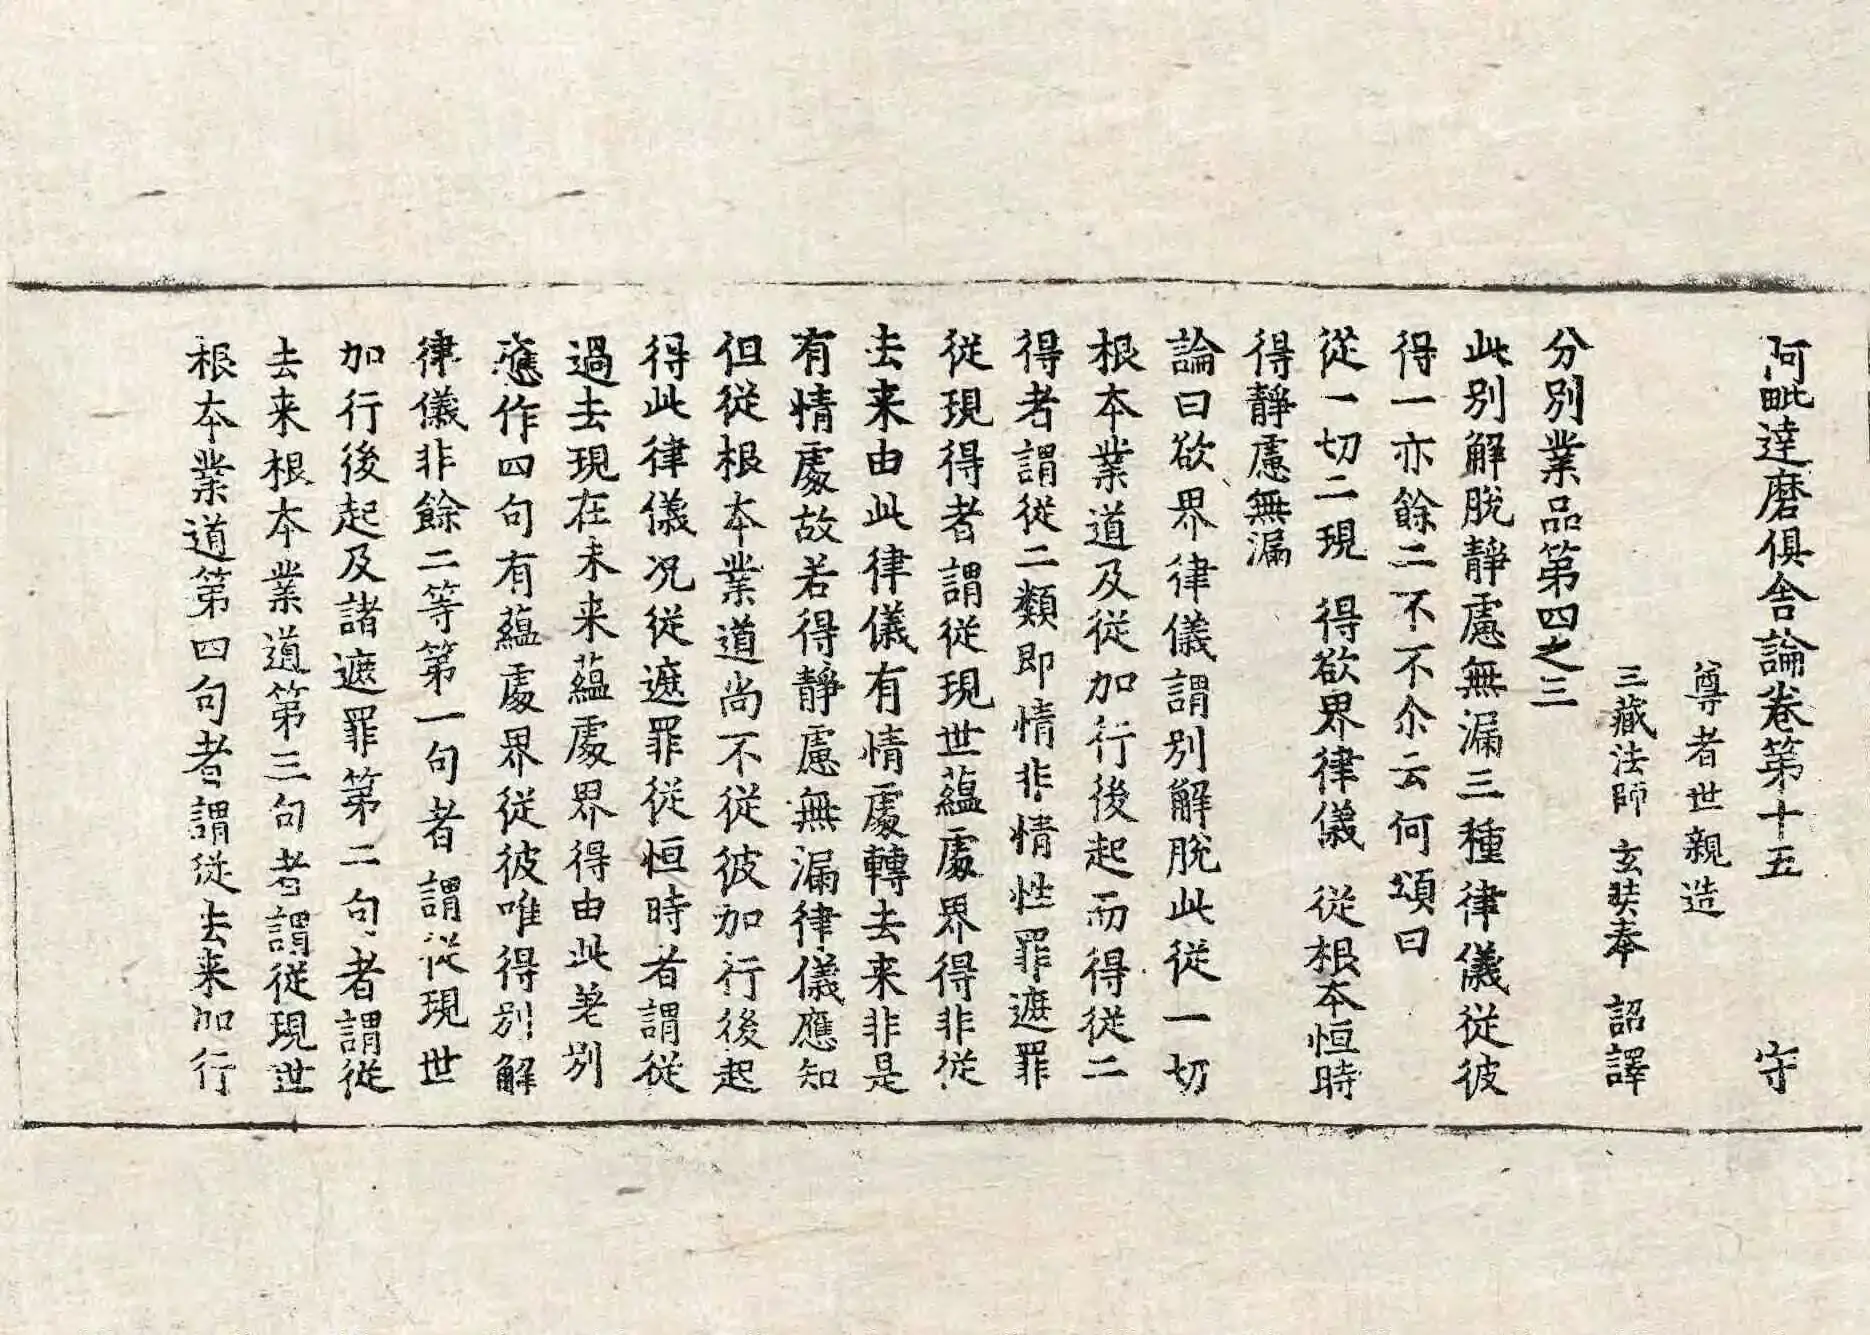 阿毗達磨俱舍論卷第十五 守
尊者世親造
三藏法師 玄奘奉 詔譯
分別業品第四之三
此別解脫靜慮無漏三種律儀從彼
得一亦餘二不不尒云何頌曰
從一切二現 得欲界律儀 從根本恒時
得靜慮無漏
論曰欲界律儀謂別解脫此從一切
根本業道及從加行後起而得從二
得者謂從二類即情非情性罪遮罪
從現得者謂從現世蘊處界得非從
去来由此律儀有情處轉去来非是
有情處故若得靜慮無漏律儀應知
但從根本業道尚不從彼加行後起
得此律儀况從遮罪從恒時者謂從
過去現在未来蘊處界得由此差別
應作四句有蘊處界從彼唯得別解
律儀非餘二等第一句者謂從現世
加行後起及諸遮罪第二句者謂從
去来根本業道第三句者謂從現世
根本業道第四句者謂從去来加行